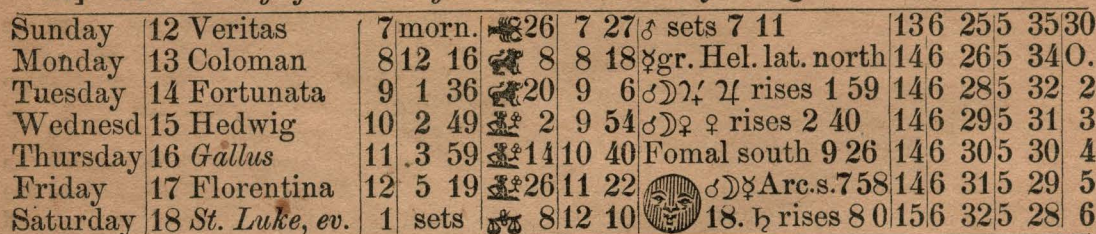 Sunday 12 Veritas 7 morn. 26 7 27 ♂ sets 7 11 13 6 25 5 35 30
Monday 13 Coloman 8 12 16 8 8 18 ☿ gr. Hel. lat. north 14 6 26 5 34 O.
Tuesday 14 Fortunata 9 1 36 20 9 6 ☌☽♃ ♃ rises 1 59 14 6 28 5 32 2
Wednesd 15 Hedwig 10 2 49 2 9 54 ☌☽♀ ♀ rises 2 40 14 6 29 5 31 3
Thursday 16 Gallus 11 3 59 14 10 40 Fomal south 9 26 14 6 30 5 30 4
Friday 17 Florentina 12 5 19 26 11 22 ☌☽☿ Arc. s. 7 58 14 6 31 5 29 5
Saturday 18 St. Luke, ev. 1 sets 8 12 10 18. ♄ rises 8 0 15 6 32 5 28 6